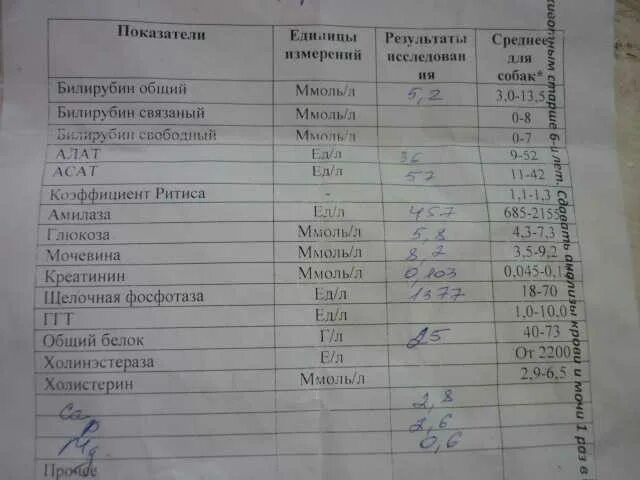 Показатели Единицы измерений Результаты исследования Среднее для собак*
Билирубин общий Ммоль/л 5,2 3,0-13,5
Билирубин связаный Ммоль/л 0-8
Билирубин свободный Ммоль/л 0-7
АЛАТ Ед/л 36 9-52
АСАТ Ед/л 57 11-42
Коэффициент Ритиса - 1,1-1,3
Амилаза Ед/л 457 685-2155
Глюкоза Ммоль/л 5,8 4,3-7,3
Мочевина Ммоль/л 8,2 3,5-9,2
Креатинин Ммоль/л 0,103 0,045-0,1
Щелочная фосфотаза Ед/л 1377 18-70
ГГТ Ед/л 1,0-10,0
Общий белок Г/л 25 40-73
Холинэстераза Е/л От 2200
Холистерин Ммоль/л 2,9-6,5
Ca 2,8
P 2,6
Mg 0,6
Прочее
старше 6-и лет. Сдавать анализы крови и мочи 1 раз в